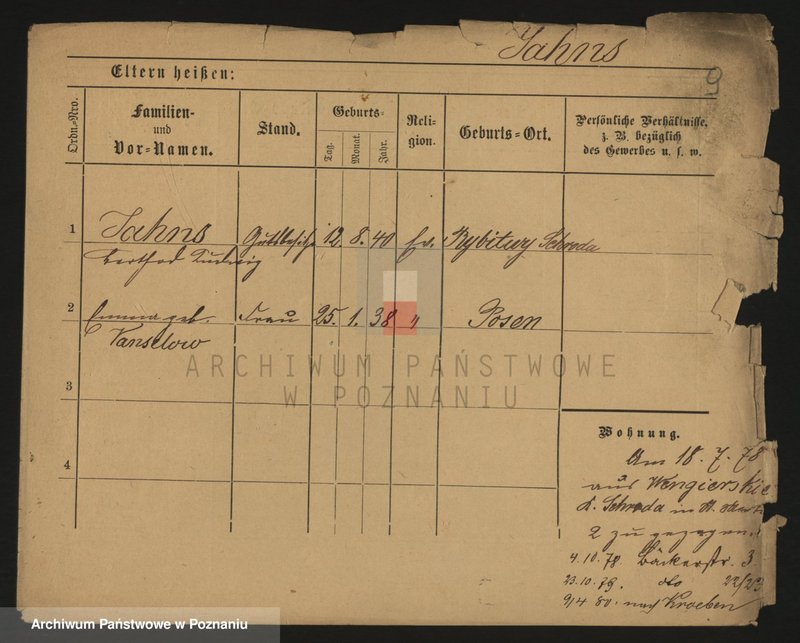 Jahns
Eltern heißen:
Ordn.-Nro.
Familien-
und
Vor-Namen.
Stand.
Geburts-
Tag.
Monat.
Jahr.
Reli-
gion.
Geburts-Ort.
Persönliche Verhältnisse,
z. B. bezüglich
des Gewerbes u. s. w.
1 Jahns Gutsbesitzer 12. 8. 40 Ev. Rybitwy Schroda
Berthod Ludwig
2 Emma geb. Frau 25. 1. 38 " Posen
Vanselow
ARCHIWUM PAŃSTWOWE
W POZNANIU
3
4
Wohnung.
Am 18. 7. 78
aus Wengierskie
K. Schroda in St.
2 zu gezogen.
4. 10. 78 Bäckerstr. 3
23. 10. 79. dto 22/23
9/4 80. nach Kroeben
Archiwum Państwowe w Poznaniu